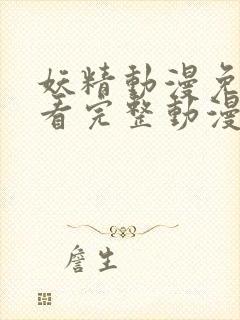 妖精動漫免
看完整動漫
詹生